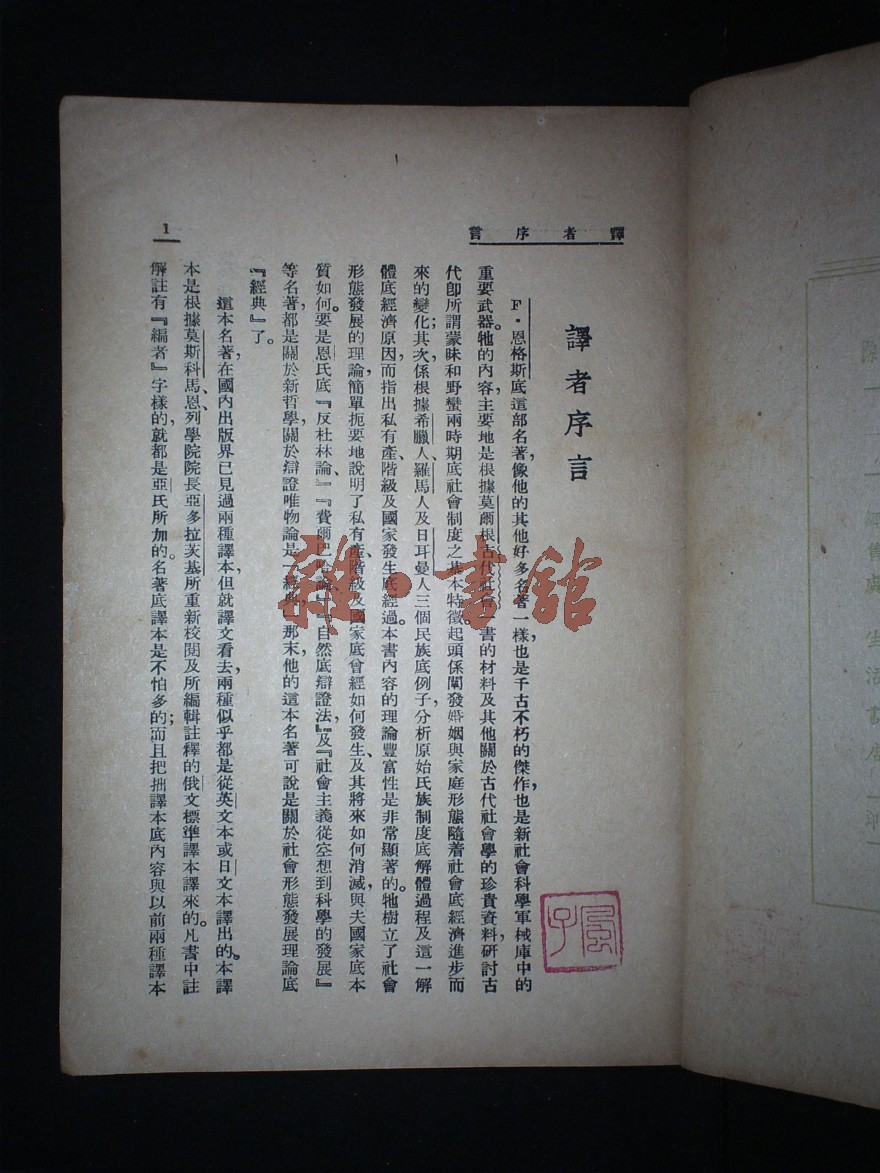 譯者序言
1
譯者序言
F·恩格斯底這部名著，像他的其他好多名著一樣，也是千古不朽的傑作，也是新社會科學軍械庫中的
重要武器。牠的內容主要地是根據莫爾根古代社會書的材料及其他關於古代社會學的珍貴資料，研討古
代卽所謂蒙昧和野蠻兩時期底社會制度之基本特徵。起頭係闡發婚姻與家庭形態隨着社會底經濟進步而
來的變化；其次係根據希臘人、羅馬人及日耳曼人三個民族底例子，分析原始氏族制度底解體過程及這一解
體底經濟原因，而指出私有產、階級及國家發生底經過。本書內容的理論豐富性是非常顯著的。牠樹立了社會
形態發展的理論，簡單扼要地說明了私有產、階級及國家底曾經如何發生、及其將來如何消滅，與夫國家底本
質如何。要是恩氏底『反杜林論』、『費爾巴哈論』、『自然底辯證法』及『社會主義從空想到科學的發展』
等名著，都是關於新哲學，關於辯證唯物論是『經典』，那末，他的這本名著可說是關於社會形態發展理論底
『經典』了。
這本名著，在國內出版界已見過兩種譯本，但就譯文看去，兩種似乎都是從英文本或日文本譯出的。本譯
本是根據莫斯科馬、恩、列學院院長亞多拉茨基所重新校閱及所編輯註釋的俄文標準譯本譯來的。凡書中註
解註有『編者』字樣的，就都是亞氏所加的。名著底譯本是不怕多的；而且把拙譯本底內容與以前兩種譯本
雜·書館
生活書店